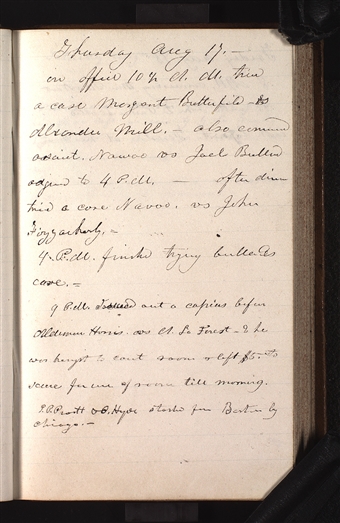 Thursday Aug 17. —
in office 10½ A. M. tried
a case Morgant Butterfield vs
Alxander Mill. — also comm
against. Nauvoo vs Joel Bullard
adjnd to 4 P.M. — after dinn
tried a case Nauvoo. vs John
4. P.M. finishd trying bullards
case. =
9 P.M. Issued out a capias before
Alderman Harris. vs A. La Forest — & he
was brought to court room & left
secure for use of room till morning.
P. P. Pratt & O. Hyde started for Boston by
Chicago. —